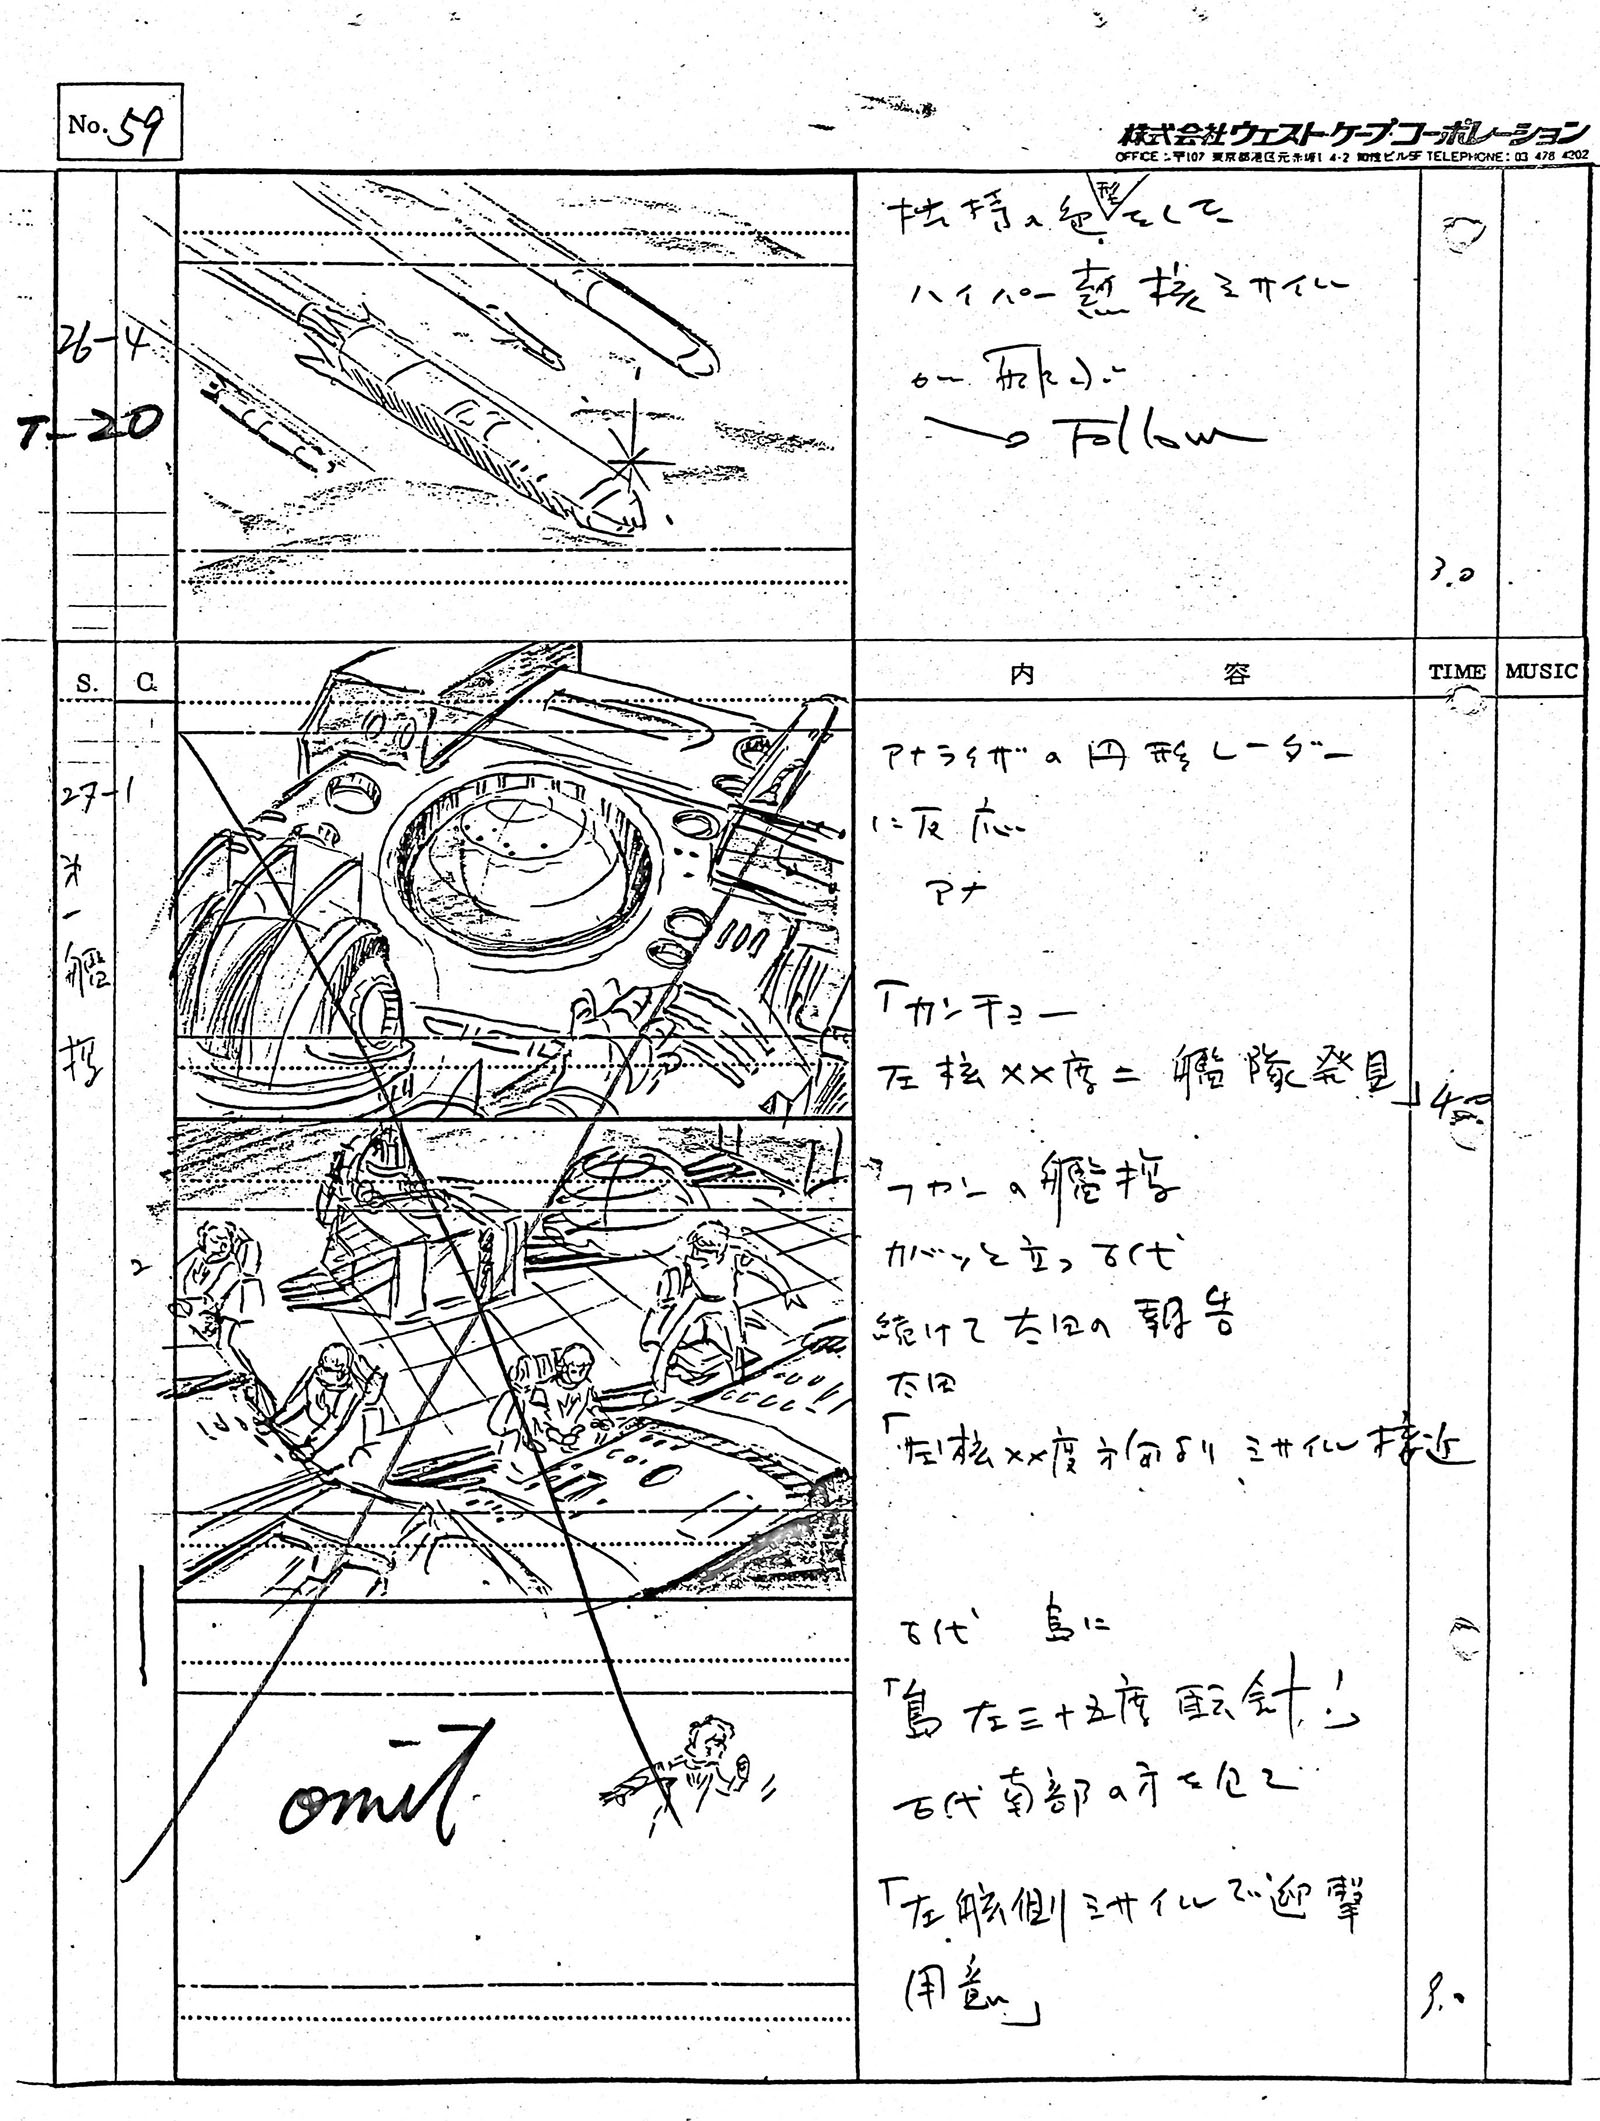 No. 59
株式会社ウェスト・ケープ・コーポレーション
OFFICE：〒107 東京都港区元赤坂1-4-2 TELEPHONE：03 478 4202
26-4
T-20
独特の色をして
型
ハイパー熱核ミサイル
Follow
3.0
S. C. 内容 TIME MUSIC
27-1
第一艦橋
アナライザの円形レーダー
に反応
アナ
「カンチョー
左舷××度ニ艦隊発見」
4.0
フカンの艦橋
2
ガバッと立つ古代
続けて太田の報告
太田
「左舷××度方向よりミサイル接近
古代 島に
「島 左三十五度転針!」
古代南部の方を見て
omit
「左舷側ミサイルで迎撃
用意」
9.0